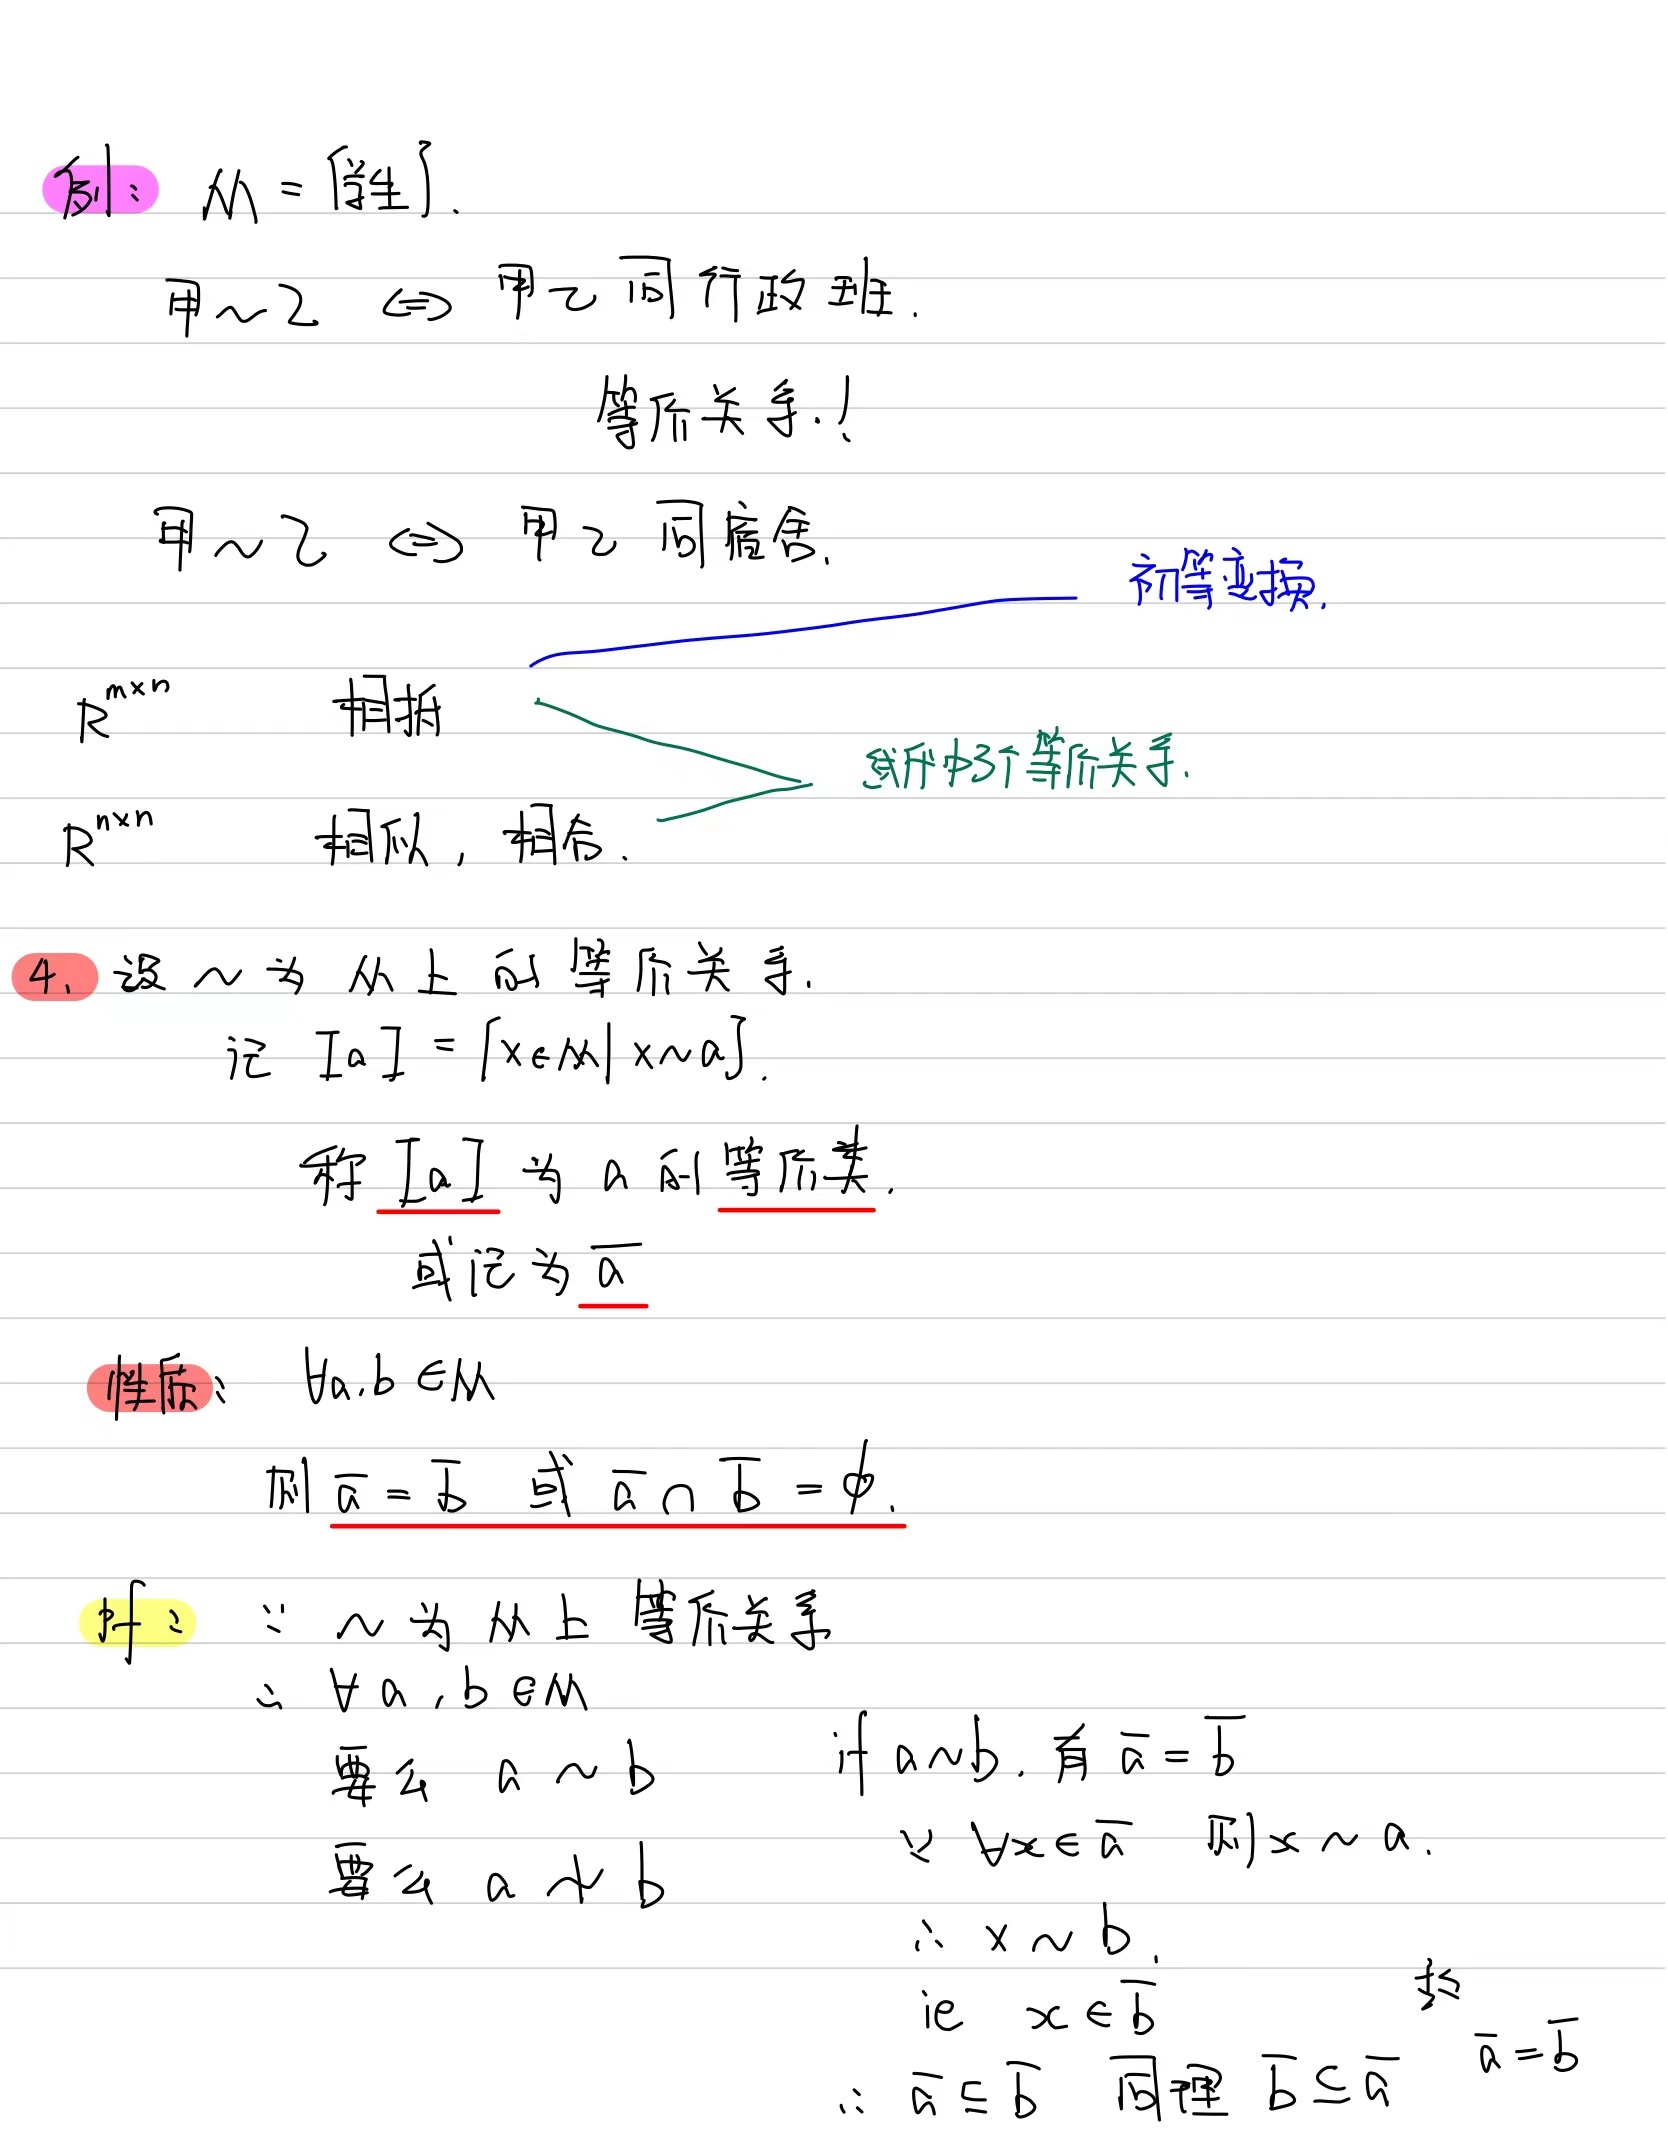 例: M = {学生}.
甲~乙 ⇔ 甲乙同行政班.
等价关系.!
甲~乙 ⇔ 甲乙同宿舍.
初等变换.
R^{m×n} 相抵
线代中3个等价关系.
R^{n×n} 相似, 相合.
4. 设 ~ 为 M 上的等价关系.
记 [a] = {x∈M | x~a}.
称 [a] 为 a 的等价类.
或记为 \overline{a}
性质: ∀a,b∈M
则 \overline{a} = \overline{b} 或 \overline{a} ∩ \overline{b} = ϕ.
pf: ∵ ~ 为 M 上等价关系
∴ ∀a,b∈M
要么 a ~ b
要么 a ≁ b
if a~b. 有 \overline{a} = \overline{b}
∵ ∀x∈\overline{a} 则 x ~ a.
∴ x ~ b.
ie x∈\overline{b}
∴ \overline{a} ⊆ \overline{b} 同理 \overline{b} ⊆ \overline{a}
\overline{a} = \overline{b}